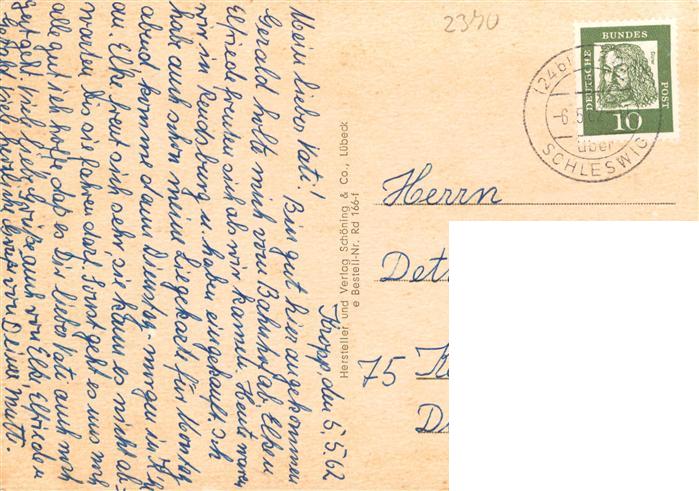 2370
DEUTSCHE BUNDESPOST
10
(24b)
-6.5.62
über
SCHLESWIG
Kropp, den 5.5.62
Mein lieber Vati! Bin gut hier angekommen
Gerald holte mich vom Bahnhof ab, Elke u
Elfriede freuten sich als wir kamen. Heute waren
wir in Rendsburg u. haben eingekauft. Ich
habe auch schon meine Liegekarte für Montag
abend komme dann Dienstag-morgen in
an. Elke freut sich sehr, sie kann es nicht ab-
warten bis sie fahren darf. Sonst geht es uns noch
alle gut ich hoffe, daß es Dir lieber Vati auch noch
gut geht. Viel liebe Grüße auch von Elke, Elfriede u
Gerald. Viele herzliche Grüße von Deiner Mutti.
Hersteller und Verlag Schöning & Co., Lübeck
e Bestell-Nr. Rd 166-f
Herrn
Det
75 K
D